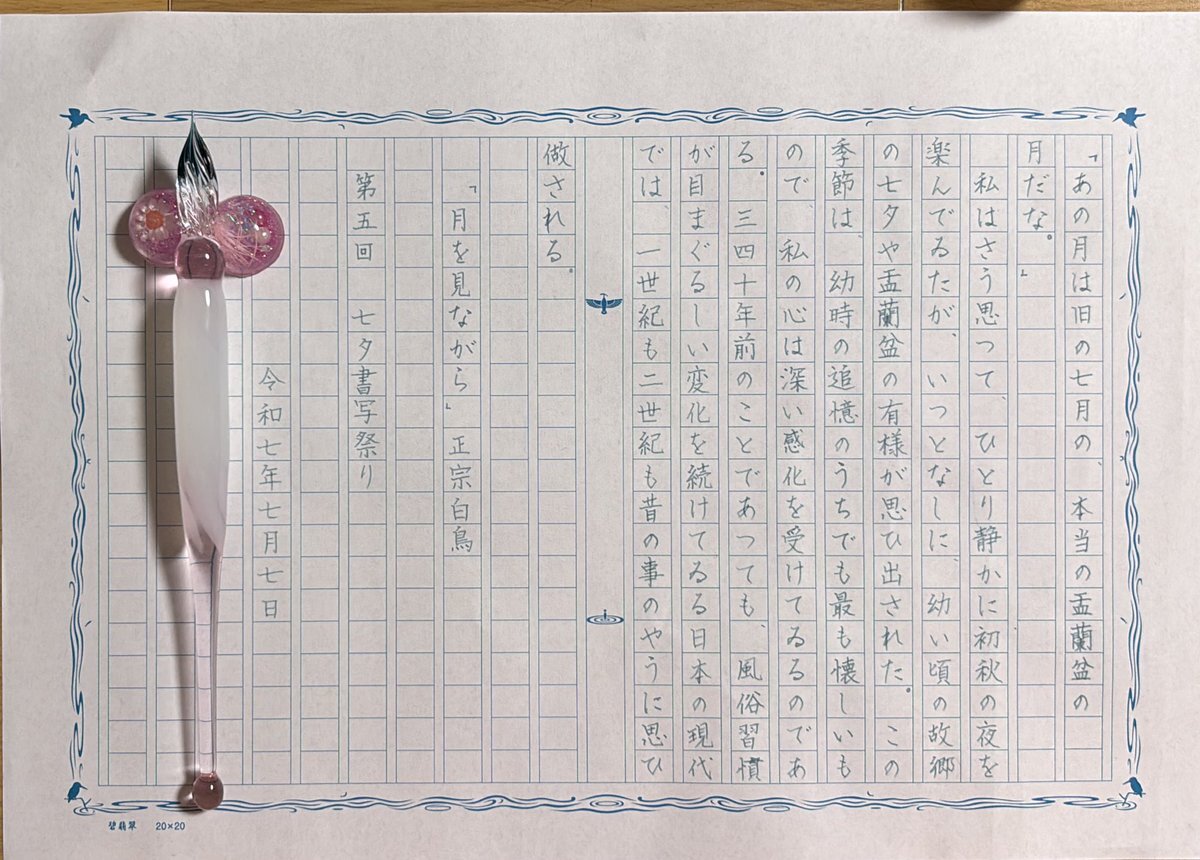 「あの月は旧の七月の、本当の盂蘭盆の
月だな。」
私はさう思つて、ひとり静かに初秋の夜を
楽んでゐたが、いつとなしに、幼い頃の故郷
の七夕や盂蘭盆の有様が思ひ出された。この
季節は、幼時の追憶のうちでも最も懐しいも
ので、私の心は深い感化を受けてゐるのであ
る。三四十年前のことであつても、風俗習慣
が目まぐるしい変化を続けてゐる日本の現代
では、一世紀も二世紀も昔の事のやうに思ひ
做される。
「月を見ながら」正宗白鳥
第五回 七夕書写祭り
令和七年七月七日
碧翡翠 20×20